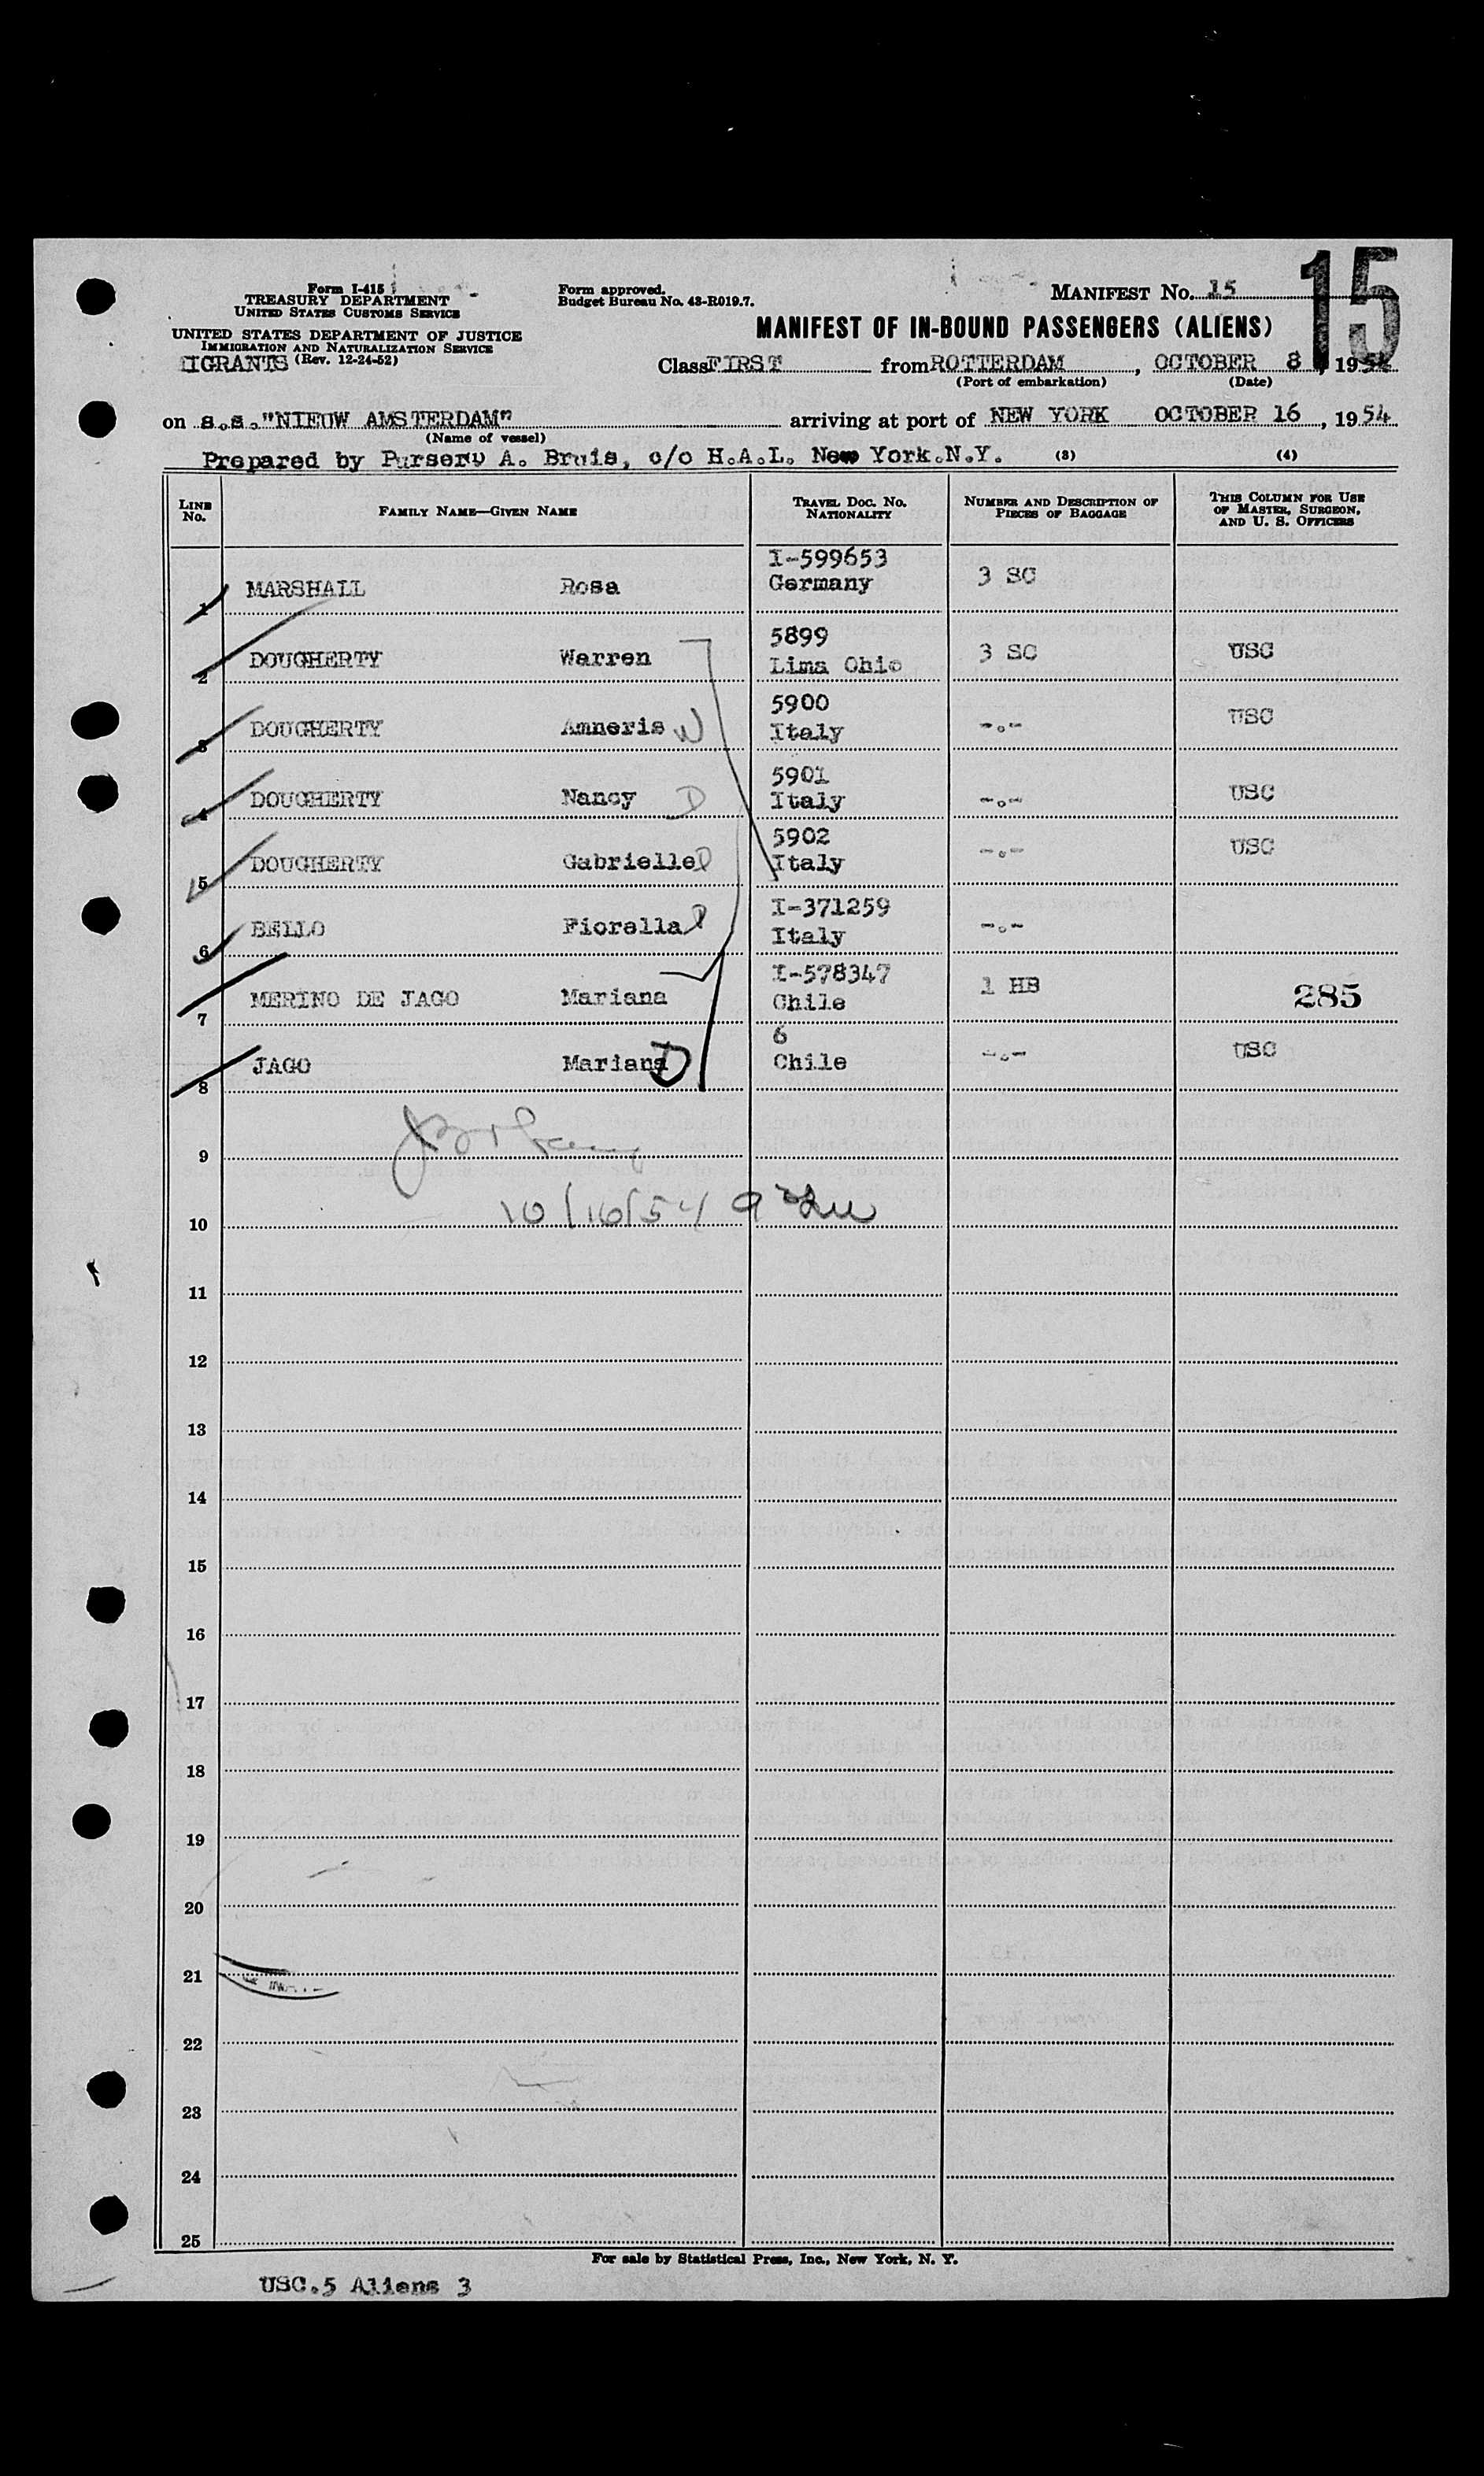 15
Form I-415
TREASURY DEPARTMENT
UNITED STATES CUSTOMS SERVICE
UNITED STATES DEPARTMENT OF JUSTICE
IMMIGRATION AND NATURALIZATION SERVICE
(Rev. 12-24-52)
Form approved.
Budget Bureau No. 43-R019.7.
MANIFEST No. 15
MANIFEST OF IN-BOUND PASSENGERS (ALIENS)
Class FIRST from ROTTERDAM, OCTOBER 8, 1954
(Port of embarkation) (Date)
on s.s. "NIEUW AMSTERDAM" arriving at port of NEW YORK OCTOBER 16, 1954
(Name of vessel)
Prepared by Purser A. Bruis, c/o H.A.L. New York.N.Y. (3) (4)
LINE No. FAMILY NAME—GIVEN NAME TRAVEL DOC. NO. NATIONALITY NUMBER AND DESCRIPTION OF PIECES OF BAGGAGE THIS COLUMN FOR USE OF MASTER, SURGEON, AND U. S. OFFICERS
1 MARSHALL Rosa I-599653 Germany 3 SC
2 DOUGHERTY Warren 5899 Lima Ohio 3 SC USC
3 DOUGHERTY Amneris W 5900 Italy -.- USC
4 DOUGHERTY Nancy D 5901 Italy -.- USC
5 DOUGHERTY Gabrielle D 5902 Italy -.- USC
6 BELLO Fiorella D I-371259 Italy -.-
7 MERINO DE JAGO Mariana I-578347 Chile 1 HB 285
8 JAGO Mariana D 6 Chile -.- USC
9
10 10/16/54
11
12
13
14
15
16
17
18
19
20
21
22
23
24
25
For sale by Statistical Press, Inc., New York, N. Y.
USC.5 Aliens 3